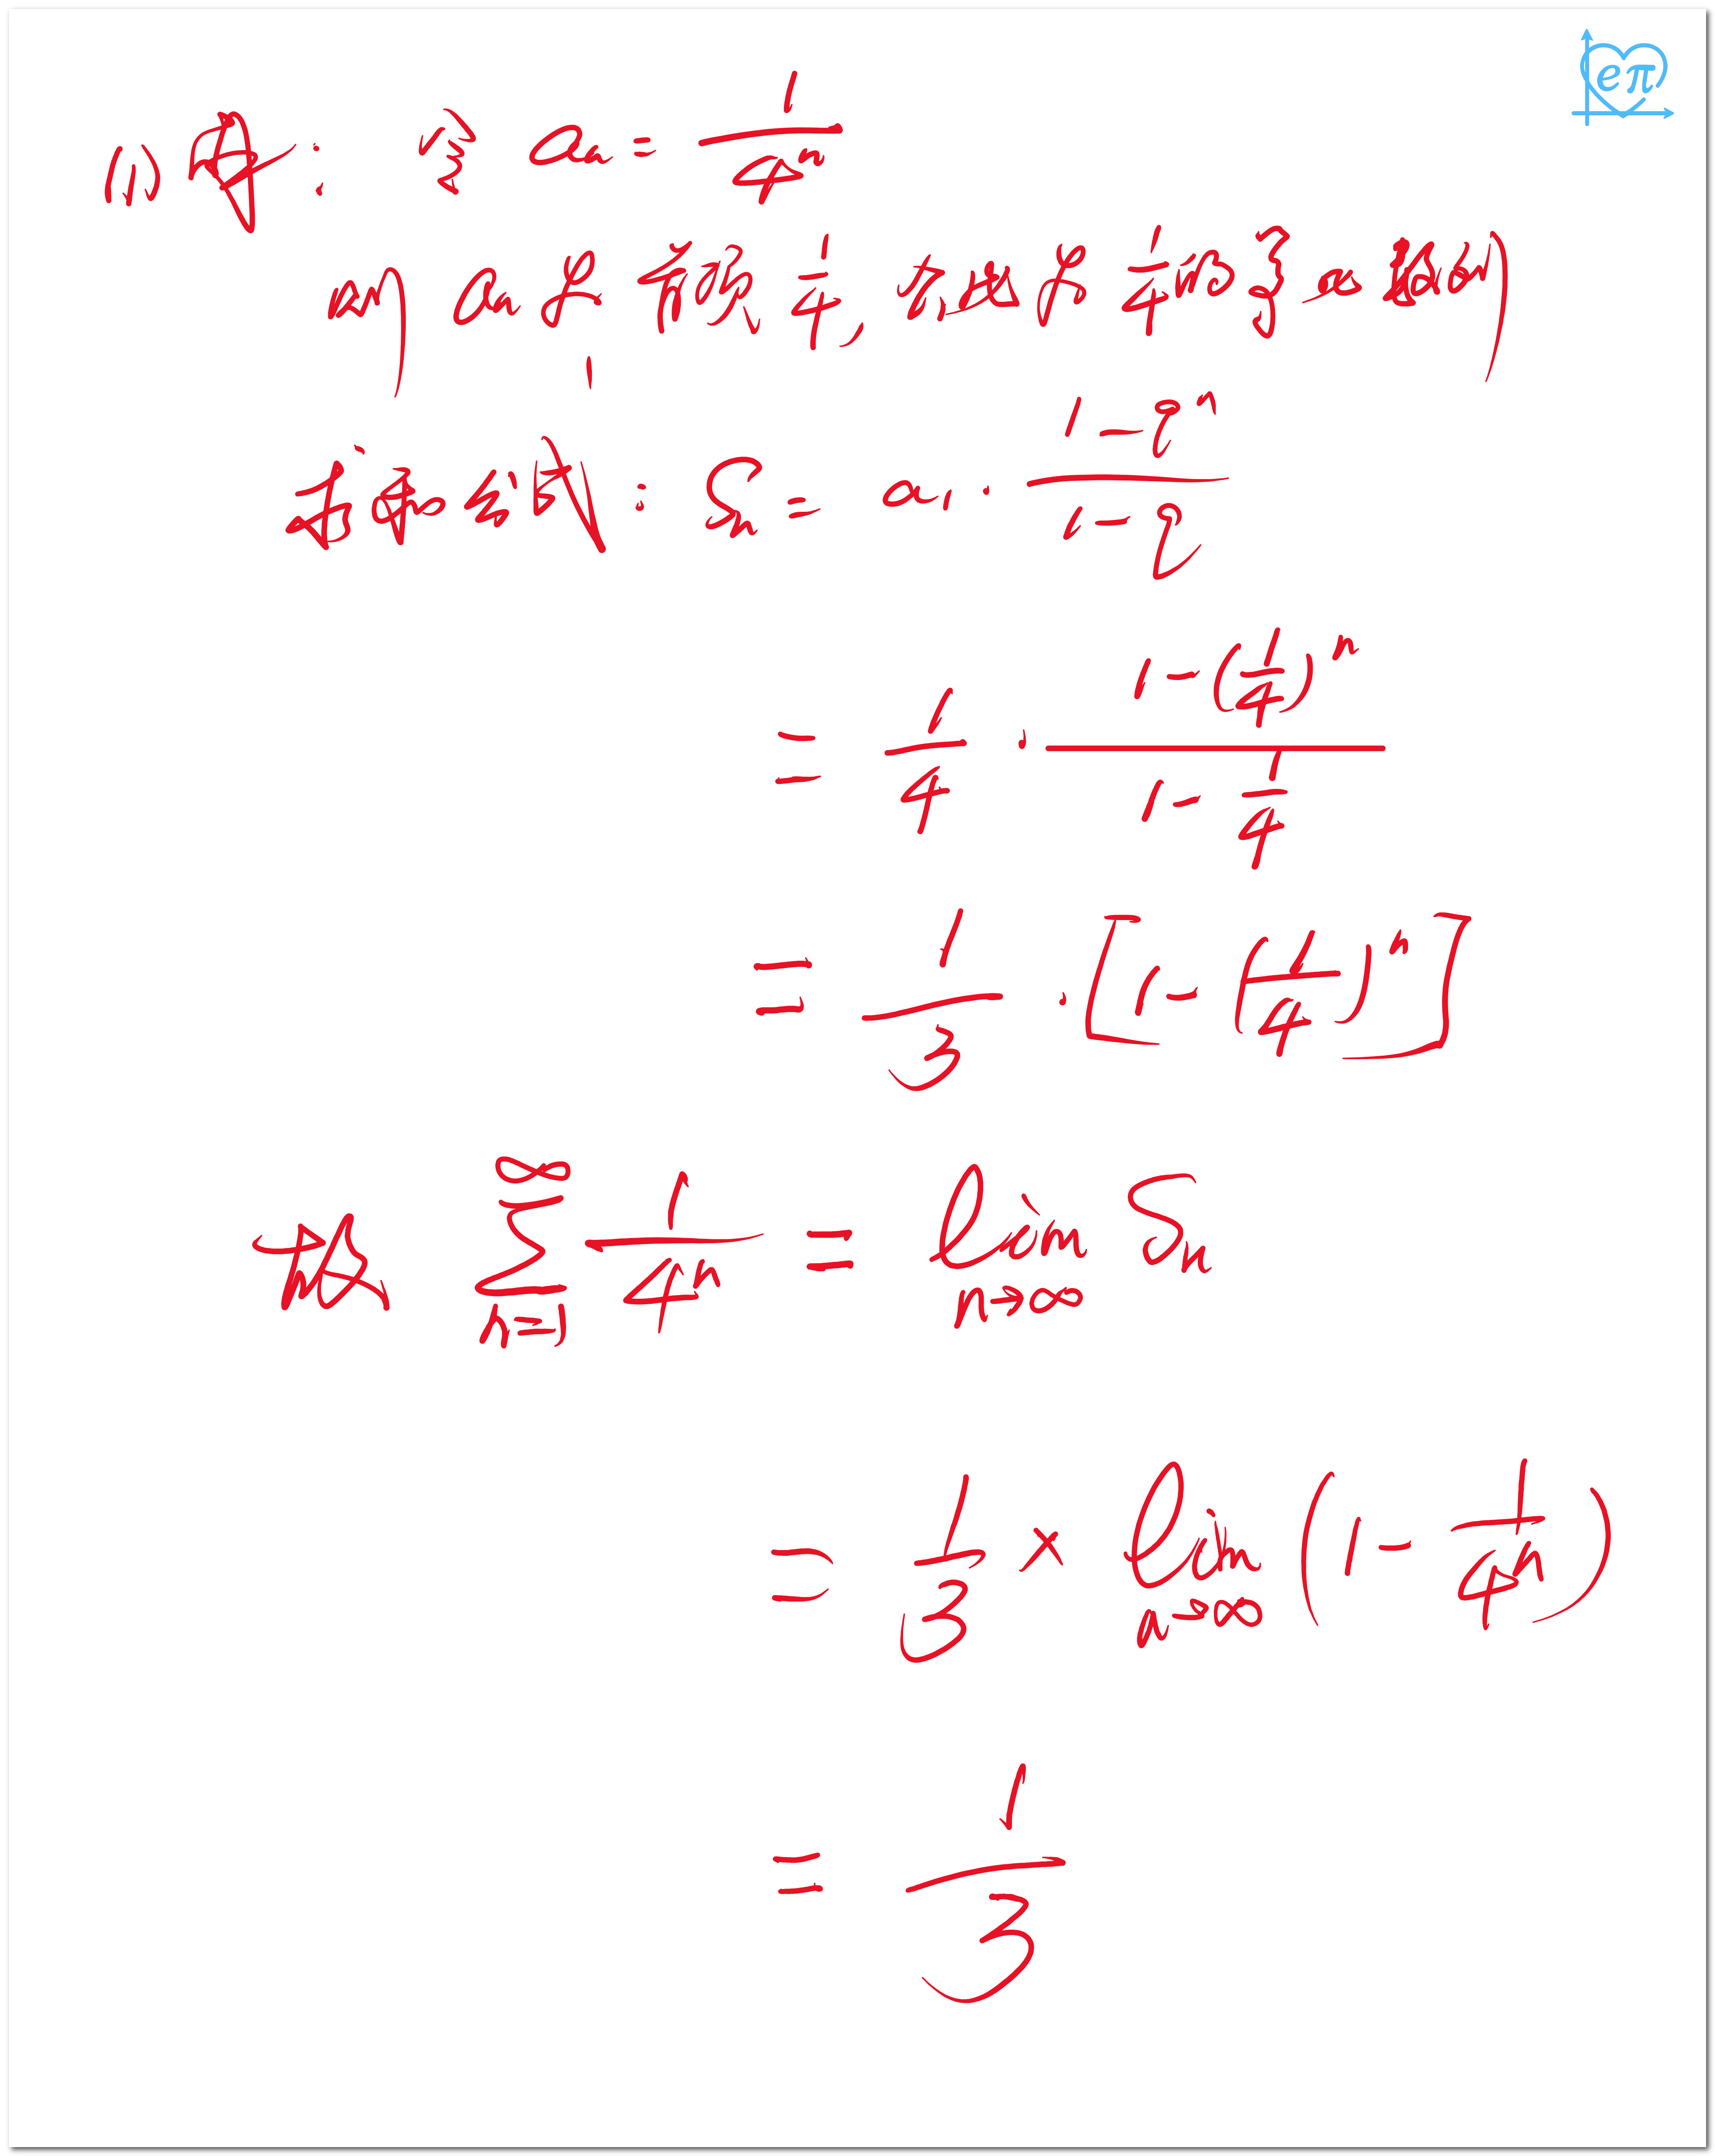 eπ
(1) 解: 令 aₙ = 1/4ⁿ
则 aₙ是首项 1/4, 公比是 1/4 的等比数列
求和公式: Sₙ = a₁ · (1-qⁿ)/(1-q)
= 1/4 · (1-(1/4)ⁿ)/(1-1/4)
= 1/3 · [1-(1/4)ⁿ]
故 ∑_{n=1}^{∞} 1/4ⁿ = lim_{n→∞} Sₙ
= 1/3 × lim_{n→∞} (1 - 1/4ⁿ)
= 1/3